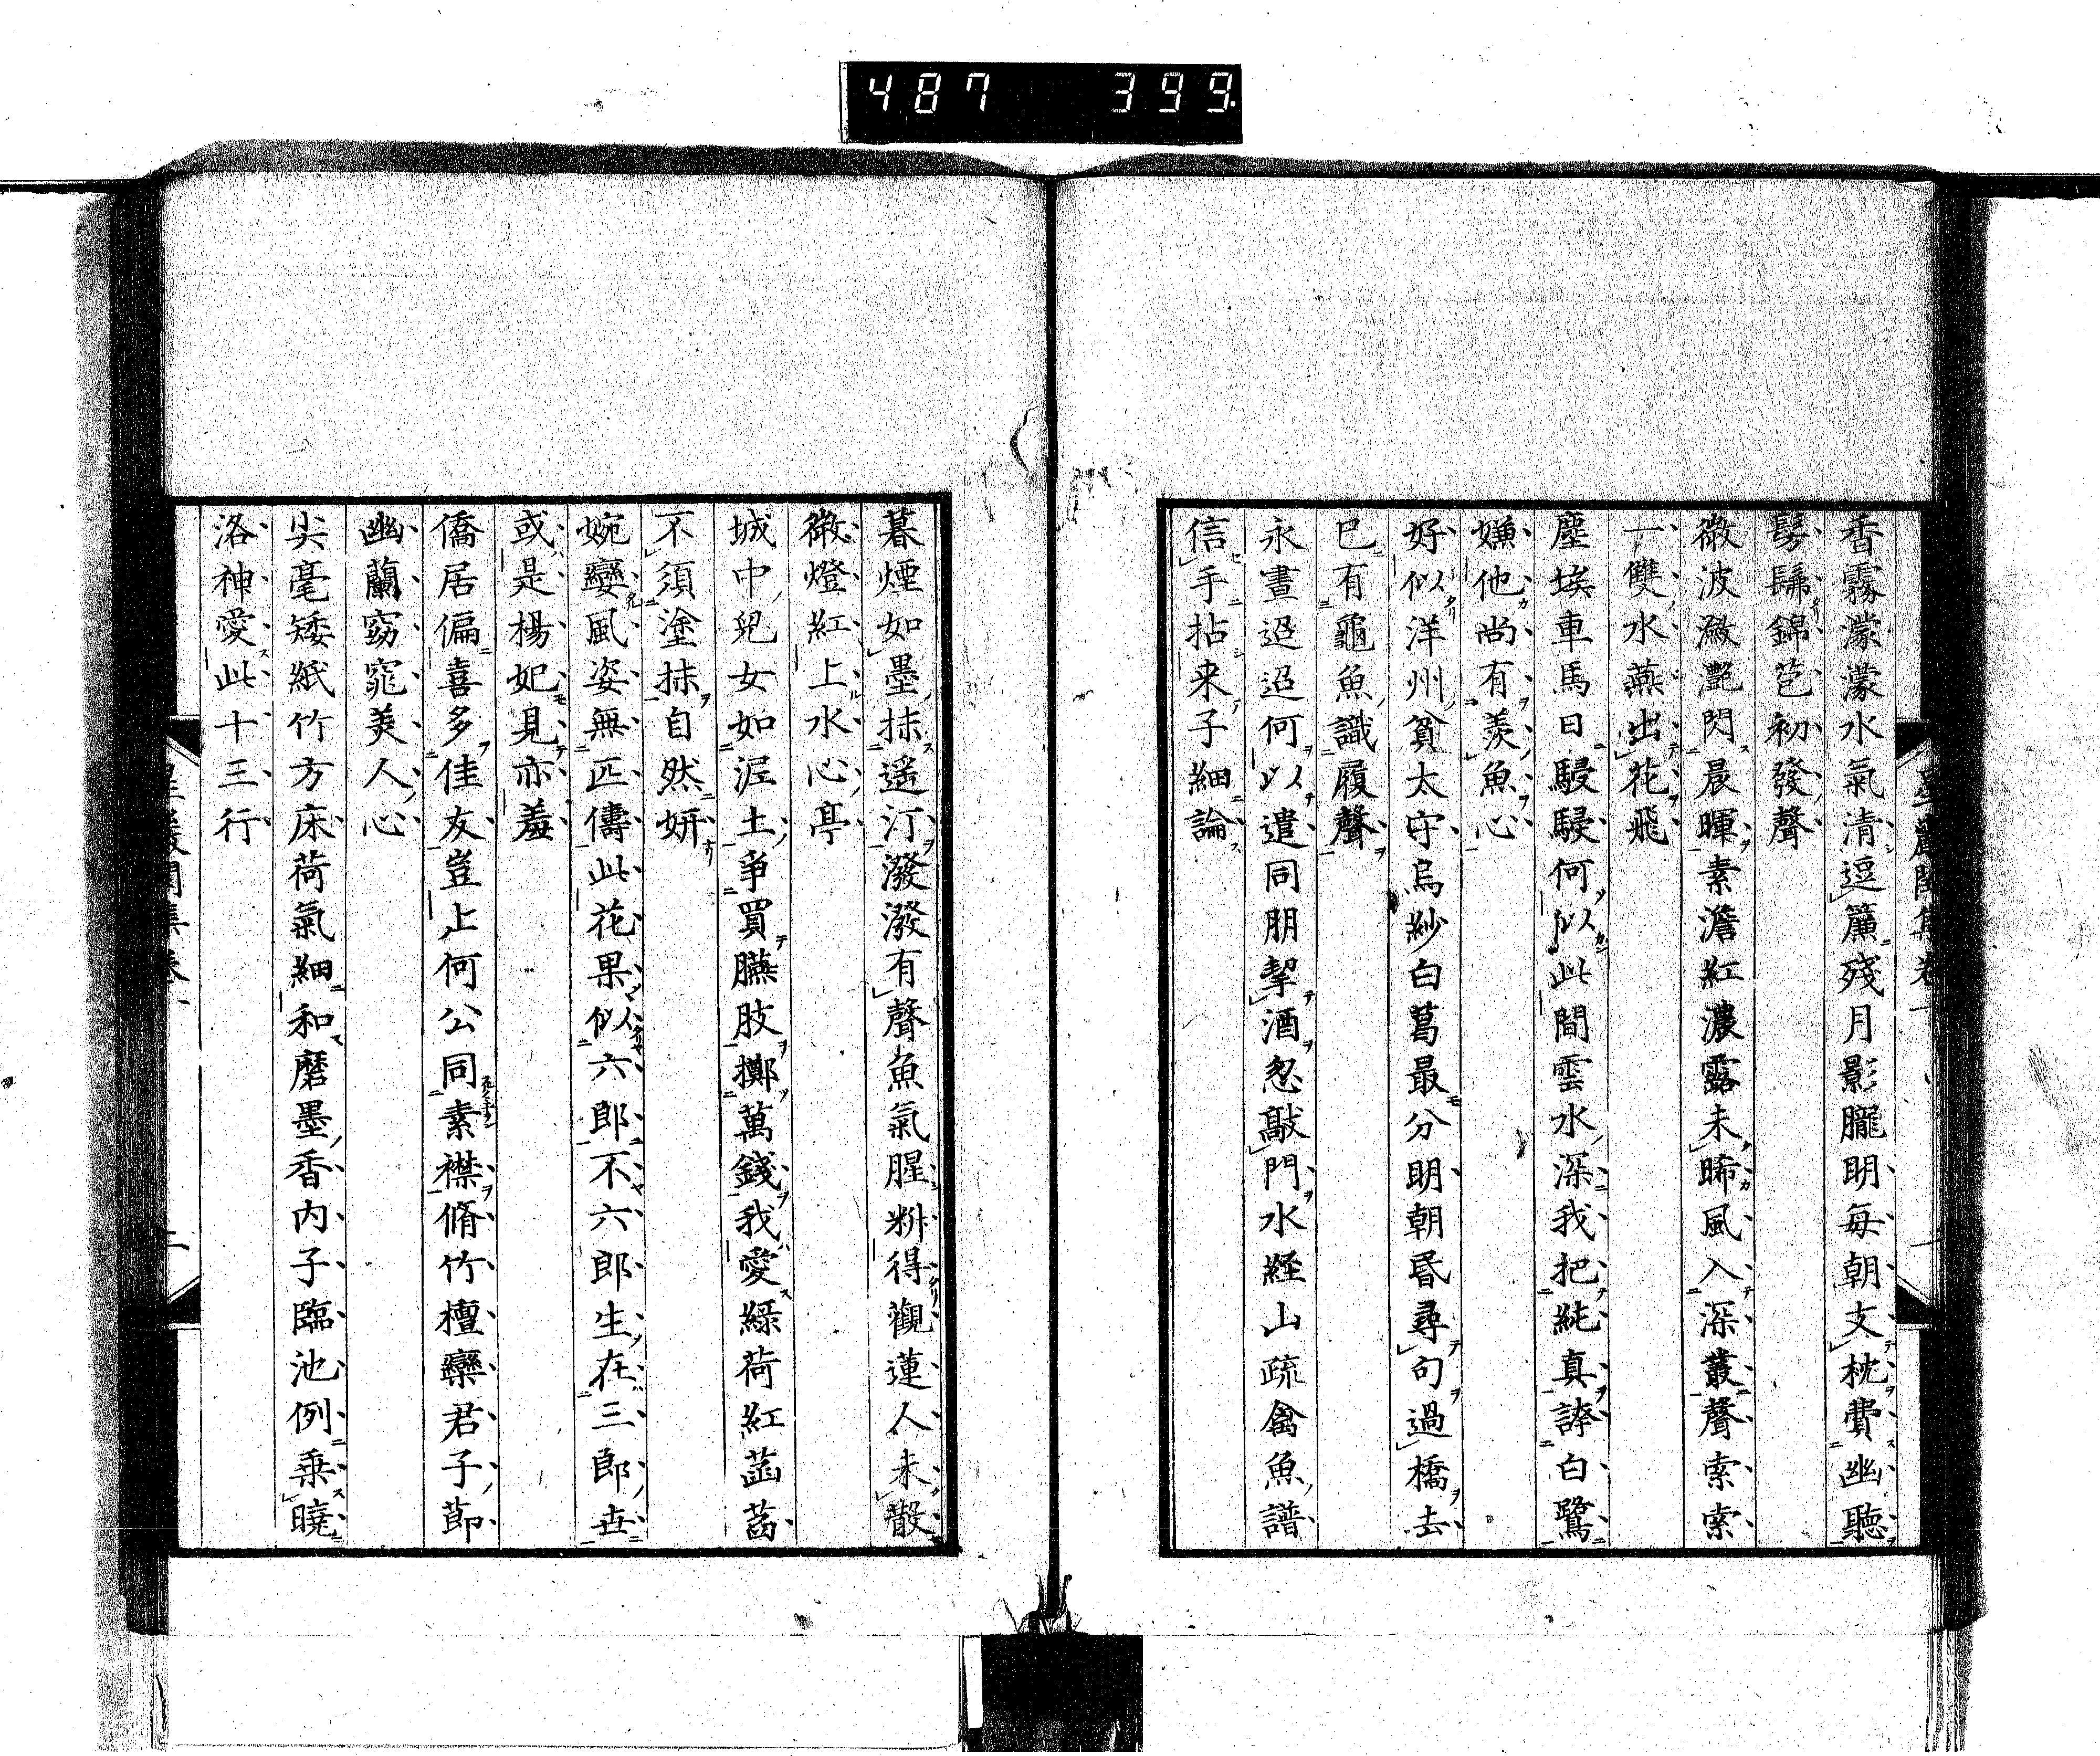 487 399
香霧濛濛水氣清逗簾殘月影朧明每朝支枕費幽聽
髣髴錦苞初發聲
微波瀲灩閃晨暉素澹紅濃露未晞風入深叢聲索索
一雙水燕出花飛
塵埃車馬日駸駸何似此間雲水深我把純真誇白鷺
嫌他尚有羨魚心
好似洋州貧太守烏紗白葛最分明朝昏尋句過橋去
已有龜魚識履聲
永晝迢迢何以遣同朋挈酒忽敲門水經山疏禽魚譜
信手拈来子細論
暮煙如墨抹遥汀潑潑有聲魚氣腥料得觀蓮人未散
微燈紅上水心亭
城中兒女如泥土爭買臙肢擲萬錢我愛緑荷紅菡萏
不須塗抹自然妍
婉孌風姿無匹儔此花果似六郎不六郎生在三郎世
或是楊妃見亦羞
僑居偏喜多佳友豈止何公同素襟脩竹檀欒君子節
幽蘭窈窕美人心
尖毫矮紙竹方床荷氣細和磨墨香内子臨池例乗曉
洛神愛此十三行